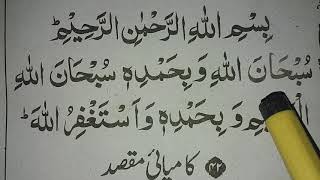 بِسْمِ اللهِ الرَّحْمٰنِ الرَّحِيْمِ ط
سُبْحَانَ اللهِ وَبِحَمْدِهٖ سُبْحَانَ اللهِ
وَبِحَمْدِهٖ وَاَسْتَغْفِرُ اللهَ ط
﴿۴۲﴾ کامیابیٔ مقصد